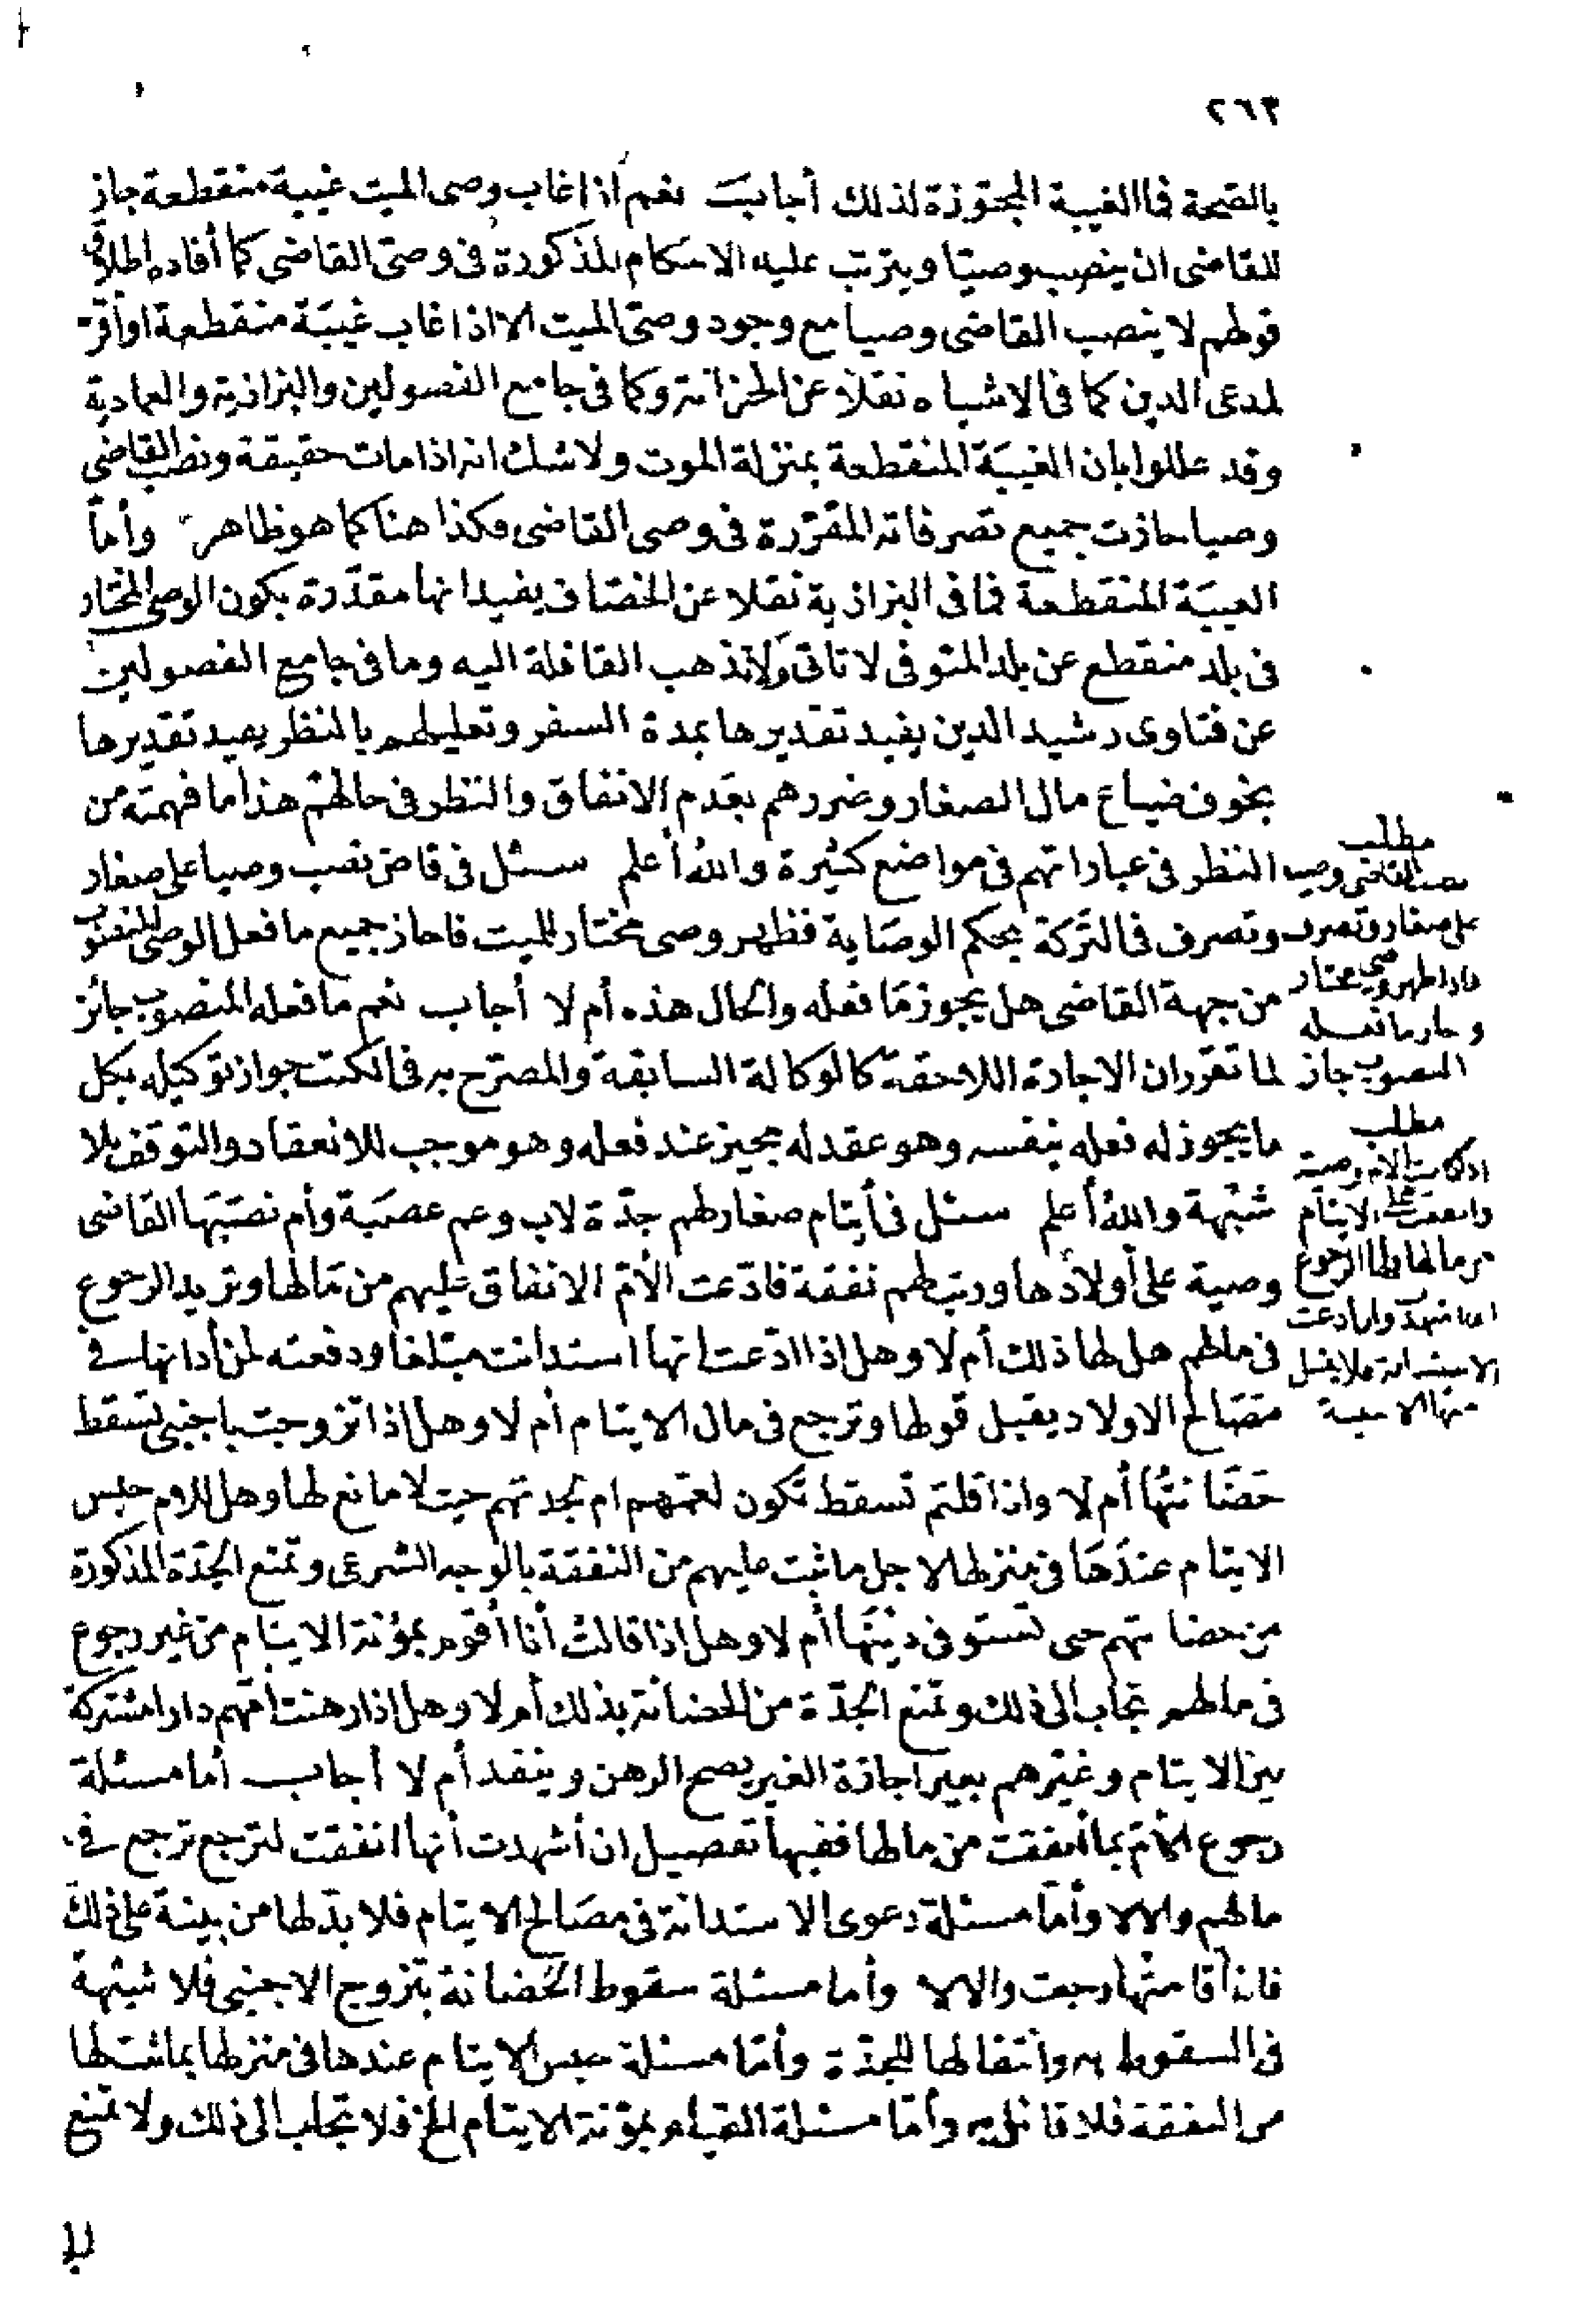 ٢٦٣
بالصحة فما الغيبة المجوزة لذلك أجاب نعم اذا غاب وصى الميت غيبة منقطعة جاز
للقاضى ان ينصب وصيا ويترتب عليه الاحكام المذكورة فى وصى القاضى كما أفاده اطلاق
قولهم لا ينصب القاضى وصيا مع وجود وصى الميت الا اذا غاب غيبة منقطعة او أقر
لمدعى الدين كما فى الاشباه نقلا عن الخزانة وكما فى جامع الفصولين والبزازية والعمادية
وقد عللوا بان الغيبة المنقطعة بمنزلة الموت ولا شك انه اذا مات حقيقة ونصب القاضى
وصيا جازت جميع تصرفاته المقررة فى وصى القاضى فكذا هنا كما هو ظاهر وأما
الغيبة المنقطعة فما فى البزازية نقلا عن الخصاف يفيد انها مقدرة بكون الوصى المختار
فى بلد منقطع عن بلد المتوفى لا تاتى ولا تذهب القافلة اليه وما فى جامع الفصولين
عن فتاوى رشيد الدين يفيد تقديرها بمدة السفر وتعليلهم بالنظر يفيد تقديرها
بخوف ضياع مال الصغار وضررهم بعدم الانفاق والنظر فى حالهم هذا ما فهمته من
النظر فى عباراتهم فى مواضع كثيرة والله أعلم سئل فى قاض نصب وصيا على صغار
وتصرف فى التركة بحكم الوصاية فظهر وصى مختار للميت فاجاز جميع ما فعل الوصى المنصوب
من جهة القاضى هل يجوز ما فعله والحال هذه أم لا أجاب نعم ما فعله المنصوب جائز
لما تقرر ان الاجازة اللاحقة كالوكالة السابقة والمصرح به فى الكتب جواز توكيله بكل
ما يجوز له فعله بنفسه وهو عقد له مجيز عند فعله وهو موجب للانعقاد والتوقف بلا
شبهة والله أعلم سئل فى أيتام صغار لهم جدة لاب وعم عصبة وأم نصبها القاضى
وصية على أولادها ورتب لهم نفقة فادعت الأم الانفاق عليهم من مالها وتريد الرجوع
فى مالهم هل لها ذلك أم لا وهل اذا ادعت انها استدانت مبلغا ودفعته لمن أدانها فى
مصالح الاولاد يقبل قولها وترجع فى مال الايتام أم لا وهل اذا تزوجت باجنبى تسقط
حضانتها أم لا واذا قلتم تسقط تكون لعمهم ام لجدتهم حيث لا مانع لها وهل للام حبس
الايتام عندها فى منزلها لاجل ما ثبت عليهم من النفقة بالوجه الشرعى وتمنع الجدة المذكورة
من حضانتهم حتى تستوفى دينها أم لا وهل اذا قالت أنا أقوم بمؤنة الايتام من غير رجوع
فى مالهم تجاب الى ذلك وتمنع الجدة من الحضانة بذلك أم لا وهل اذا رهنت امهم دارا مشتركة
بين الايتام وغيرهم بغير اجازة الغير يصح الرهن وينفذ أم لا أجاب أما مسئلة
رجوع الأم بما أنفقت من مالها ففيها تفصيل ان أشهدت أنها انفقت لترجع ترجع فى
مالهم والا لا وأما مسئلة دعوى الاستدانة فى مصالح الايتام فلا بد لها من بينة على ذلك
فان أقامتها رجعت والا لا وأما مسئلة سقوط الحضانة بتزوج الاجنبى فلا شبهة
فى السقوط به وانتقالها للجدة وأما مسئلة حبس الايتام عندها فى منزلها بما ثبت لها
من النفقة فلا قائل به وأما مسئلة القيام بمؤنة الايتام الخ فلا تجاب الى ذلك ولا تمنع
مطلب
نصب القاضى وصيا
على صغار وتصرف
فاذا ظهر وصى مختار
وجاز ما فعله
المنصوب جاز
مطلب
اذا كانت الام وصية
وانفقت على الايتام
من مالها لها الرجوع
اذا اشهدت وان ادعت
الاستدانة فلا يقبل
منها الا ببينة